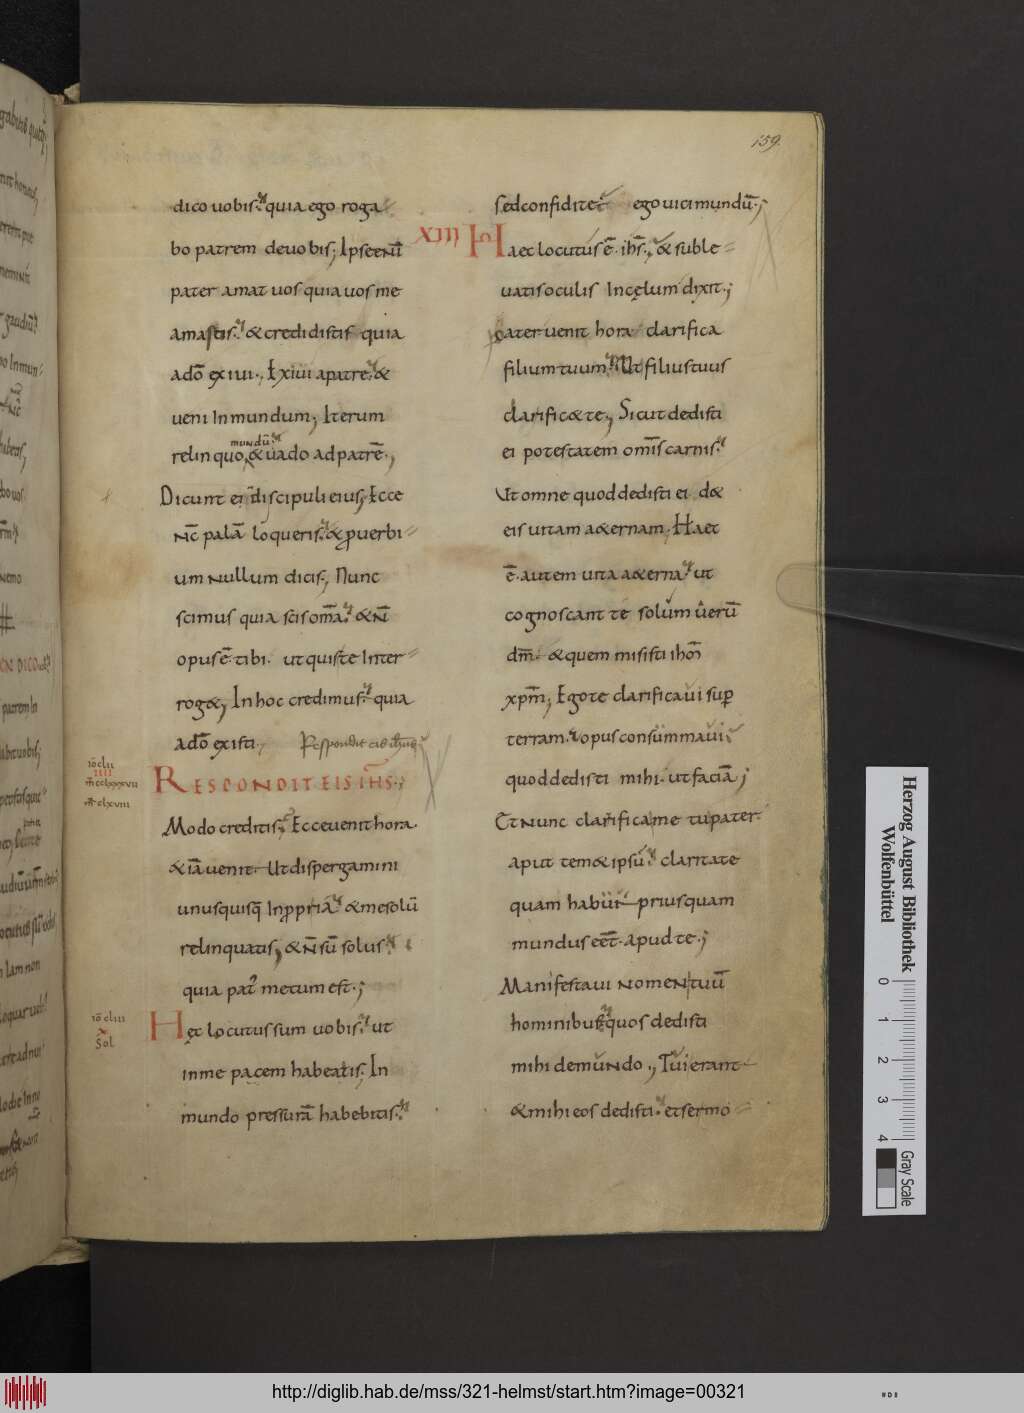 159.
dico uobis; quia ego roga
bo patrem deuobis; Ipse eni͞
pater amat uos quia uos me
amastis; & credidistis quia
ado͞ exiui; Exiui apatre; &
ueni Inmundum; Iterum
mundu͞
relinquo, & uado adpatre͞;
Dicunt ei discipuli eius; Ecce
Nc͞ pala͞ loqueris; & ꝓuerbi
um Nullum dicis; Nunc
scimus quia scis om͞a; & N͞
opus e͞ tibi. ut quiste Inter
rog&; Inhoc credimus; quia
ado͞ existi;
Respondit eis ih͞s
io͞ clii
IIII
RESPONDIT EIS IH͞S;
Modo creditis; Ecce uenit hora.
& ia͞ uenit. Ut dispergamini
unusquisq; Inꝓpria͞; & me solu͞
relinquatis; & N͞ su͞ solus;
quia pat͛ mecum est;
io͞ cliii
X
Sol
Hęc locutus sum uobis; ut
inme pacem habeatis; In
mundo pressura͞ habebitis;
sed confidite; ego uici mundu͞;
XIII Haec locutus e͞. ih͞s; & suble
uatis oculis Incęlum dixit;
pater uenit hora clarifica
filium tuum; Ut filius tuus
clarific& te; Sicut dedisti
ei potestatem om͞is carnis;
Ut omne quod dedisti ei d&
eis uitam a&ernam; Haec
e͞ autem uita a&erna; ut
cognoscant te solum ueru͞
dm͞. & quem misisti ih͞m
xpm͞; Ego te clarificaui suꝑ
terram. opus consummaui
quod dedisti mihi. ut facia͞;
Et Nunc clarifica me tu pater.
aput tem&ipsu͞; claritate
quam habui priusquam
mundus ee͞t. apud te;
Manifestaui nomen tuu͞
hominibus; quos dedisti
mihi de mundo; Tui erant
& mihi eos dedisti; et sermo
Herzog August Bibliothek
Wolfenbüttel
0 1 2 3 4
Gray Scale
http://diglib.hab.de/mss/321-helmst/start.htm?image=00321